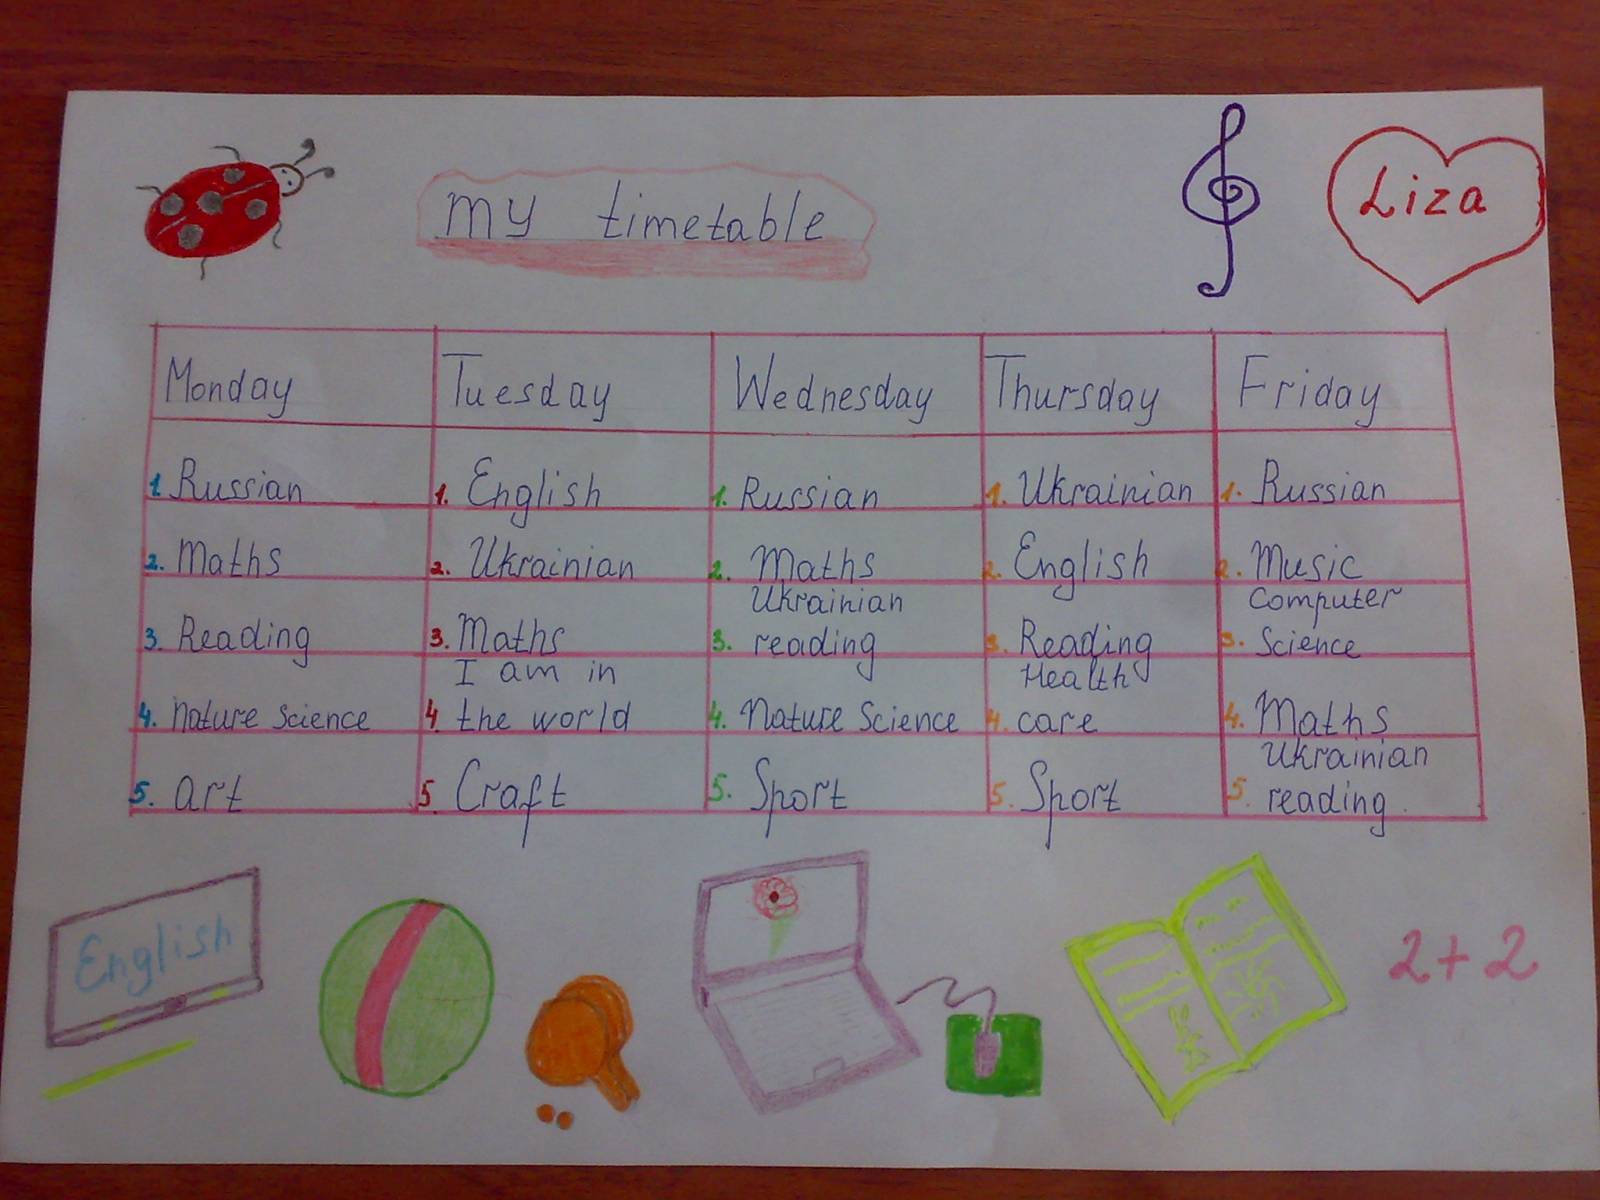 my timetable
Liza
Monday Tuesday Wednesday Thursday Friday
1. Russian 1. English 1. Russian 1. Ukrainian 1. Russian
2. Maths 2. Ukrainian 2. Maths 2. English 2. Music
3. Reading 3. Maths 3. Ukrainian reading 3. Reading 3. Computer Science
4. Nature Science 4. I am in the world 4. Nature Science 4. Health care 4. Maths
5. Art 5. Craft 5. Sport 5. Sport 5. Ukrainian reading.
English
2+2